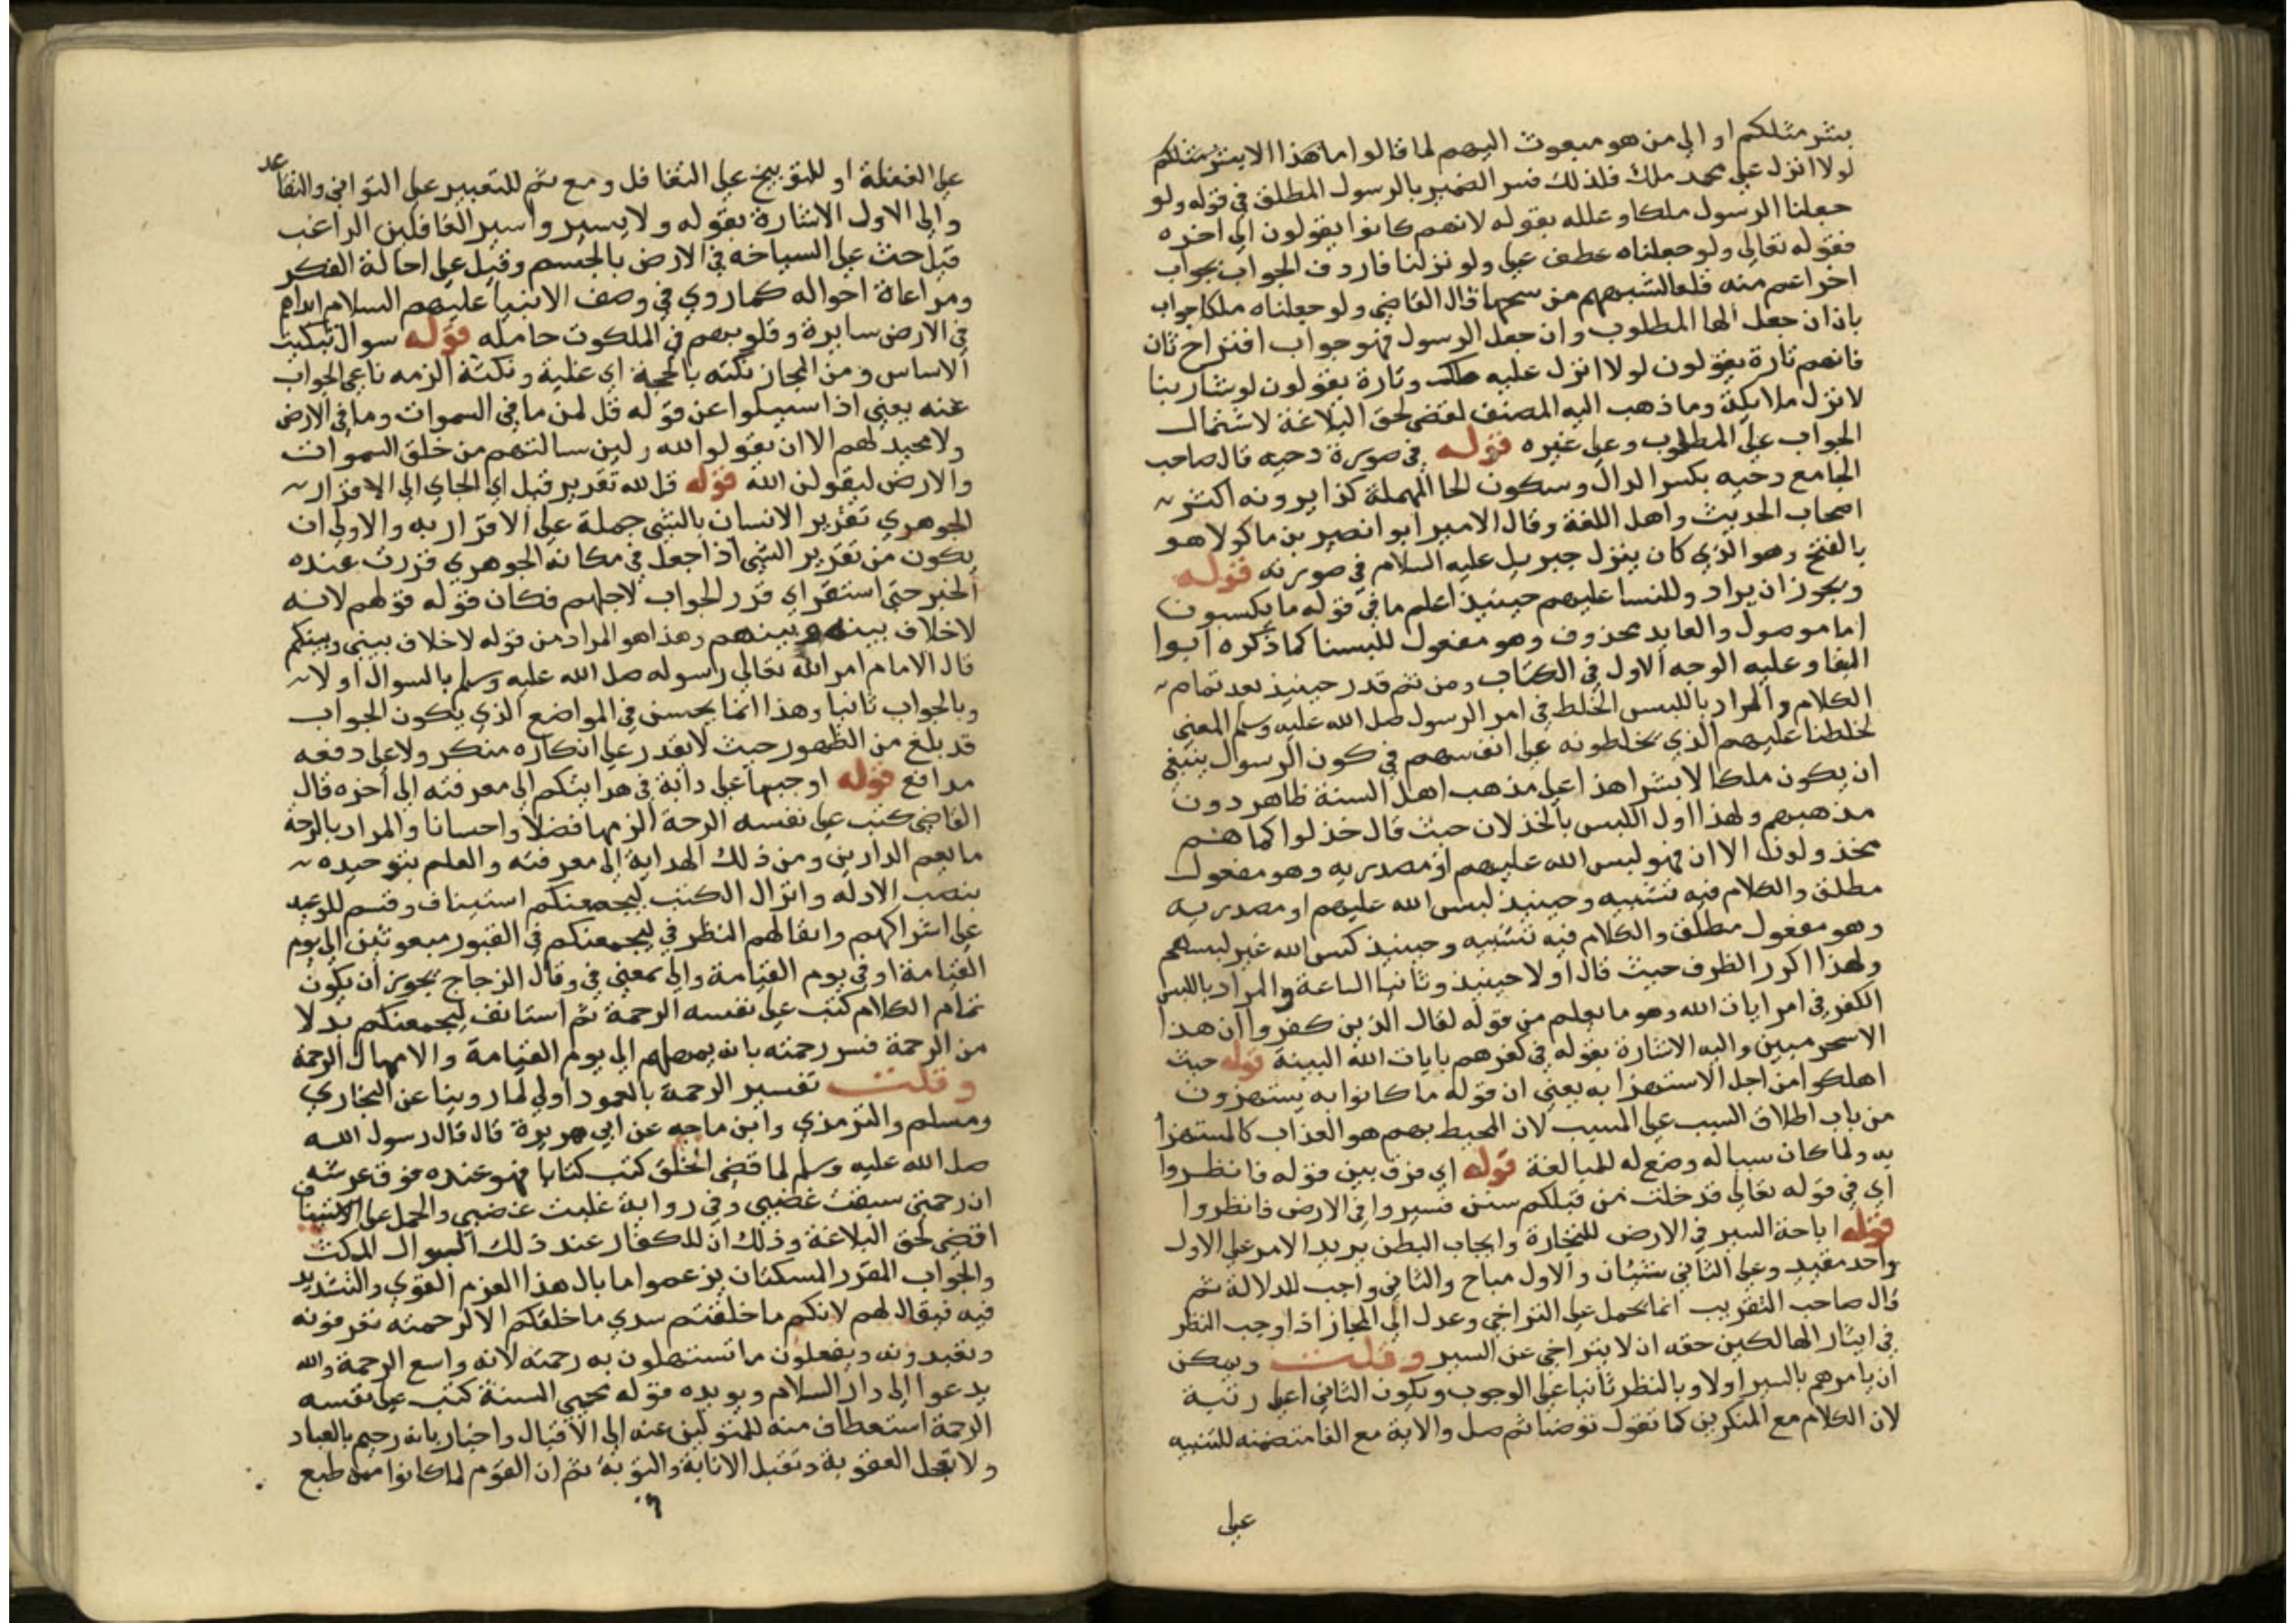 بشر مثلكم او الى من هو مبعوث اليهم لما قالوا ما هذا الا بشر مثلكم
لولا انزل على محمد ملك فلذلك فسر الضمير بالرسول المطلق في قوله ولو
جعلنا الرسول ملكا وعلله بقوله لانهم كانوا يقولون الى اخره
فقوله تعالى ولو جعلناه عطف على ولو نزلنا فاردف الجواب بجواب
اخر اعم منه قال القاضي ولو جعلناه ملكا جواب
بان ان جعل الها المطلوب وان جعل الرسول فهو جواب اقتراح ثان
فانهم تارة يقولون لولا انزل عليه ملك وتارة يقولون لو شا ربنا
لانزل ملايكة وما ذهب اليه المصنف لحق البلاغة لاشتمال
الجواب على المطلوب وعلى غيره قوله في صورة دحيه قال صاحب
الجامع دحيه بكسر الدال وسكون الحا المهملة كذا يرويه اكثر
اصحاب الحديث واهل اللغة وقال الامير ابو انصير بن ماكولا هو
بالفتح وهو الذي كان ينزل جبريل عليه السلام في صورته قوله
ويجوز ان يراد وللنسا عليهم حينيذ اعلم ما في قوله ما يكسبون
اما موصول والعايد محذوف وهو مفعول للبسنا كما ذكره ابوا
البقا وعليه الوجه الاول في الكتاب ومن ثم قدر حينيذ بعد تمام
الكلام والمراد باللبس الخلط في امر الرسول صلى الله عليه وسلم المعنى
لخلطنا عليهم الذي يخلطونه على انفسهم في كون الرسول ينبغي
ان يكون ملكا لا بشرا هذا على مذهب اهل السنة ظاهر دون
مذهبهم ولهذا اول اللبس بالخذلان حيث قال خذلوا كما هم
مخذولون الا ان فهو لبس الله عليهم او مصدريه وهو مفعول
مطلق والكلام فيه تشبيه وحينيذ لبس الله عليهم او مصدريه
وهو مفعول مطلق والكلام فيه تشبيه وحينيذ كبس الله غير لبسهم
ولهذا اكرر الظرف حيث قال اولا حينيذ وثانيا الساعة والمراد باللبس
الكفر في امر ايات الله وهو ما يعلم من قوله لقال الذين كفروا ان هذا
الا سحر مبين واليه الاشارة بقوله في كفرهم بايات الله البينة قوله حيث
اهلكوا من اجل الاستهزا به يعني ان قوله ما كانوا به يستهزون
من باب اطلاق السبب على المسبب لان المحيط بهم هو العذاب كالمستهزا
به ولما كان سببا له وضع له للمبالغة قوله اي فرق بين قوله فانظروا
اي في قوله تعالى قد خلت من قبلكم سنن فسيروا في الارض فانظروا
قوله اباحة السير في الارض للتجارة وايجاب البطن يريد الامر على الاول
واحد مقيد وعلى الثاني شيئان والاول مباح والثاني واجب للدلالة ثم
قال صاحب التقريب انما يحمل على التراخي وعدل الى المجاز اذ اوجب النظر
في ايثار الهالكين حقه ان لا يتراخي عن السير وقلت ويمكن
ان يامرهم بالسير اولا وبالنظر ثانيا على الوجوب ويكون الثاني اعلى رتبة
لان الكلام مع المنكرين كما تقول توضا ثم صل والاية مع الفا متضمنه للتنبيه
على
على الغفلة او للتوبيخ على التغافل ومع ثم للتعيير على التواني والتقاعد
والى الاول الاشارة بقوله ولا يسيروا سير الغافلين الراغب
قيل حث على السياحه في الارض بالجسم وقيل على احالة الفكر
ومراعاة احواله كما روي في وصف الانبيا عليهم السلام ابدانهم
في الارض سايرة وقلوبهم في الملكوت حامله قوله سوال تبكيت
الاساس ومن المجاز بكته بالحجة اي غلبه وبكته الزمه ما عي الجواب
عنه يعني اذا سيلوا عن قوله قل لمن ما في السموات وما في الارض
ولا محيد لهم الا ان يقولوا الله ولين سالتهم من خلق السموات
والارض ليقولن الله قوله قل لله تقرير قيل اي الجاي الى الاقرار
الجوهري تقرير الانسان بالشي جملة على الاقرار به والاولى ان
يكون من تقرير الشي اذا جعل في مكانه الجوهري قررت عنده
الخبر حتى استقر اي قرر الجواب لاجلهم فكان قوله قولهم لانه
لا خلاف بينه وبينهم وهذا هو المراد من قوله لا خلاف بيني وبينكم
قال الامام امر الله تعالى رسوله صلى الله عليه وسلم بالسوال اولا
وبالجواب ثانيا وهذا انما يحسن في المواضع الذي يكون الجواب
قد بلغ من الظهور حيث لا يقدر على انكاره منكر ولا على دفعه
مدافع قوله اوجبها على ذاته في هدايتكم الى معرفته الى اخره قال
القاضي كتب على نفسه الرحمة الزمها فضلا واحسانا والمراد بالرحمة
ما يعم الدارين ومن ذلك الهداية الى معرفته والعلم بتوحيده
بنصب الادلة وانزال الكتب ليجمعنكم استيناف وقسم للوعيد
على اشراكهم واغفالهم النظر في ليجمعنكم في القبور مبعوثين الى يوم
القيامة او في يوم القيامة والى بمعنى في وقال الزجاج يجوز ان يكون
تمام الكلام كتب على نفسه الرحمة ثم استانف ليجمعنكم بدلا
من الرحمة فسر رحمته بانه يمهلهم الى يوم القيامة والامهال الرحمة
وقلت تفسير الرحمة بالعموم اولى لما روينا عن البخاري
ومسلم والترمذي وابن ماجه عن ابي هريرة قال قال رسول الله
صلى الله عليه وسلم لما قضى الخلق كتب كتابا فهو عنده فوق عرشه
ان رحمتي سبقت غضبي وفي رواية غلبت غضبي والحمل على الاستيناف
اقضى لحق البلاغة وذلك ان للكفار عند ذلك السوال المبكت
والجواب المقرر المسكتان يزعموا ما بال هذا العزم القوي والتشديد
فيه فيقال لهم لانكم ما خلقتم سدي ما خلقكم الا لرحمته تعرفونه
وتعبدونه وتفعلون ما تستهلون به رحمته لانه واسع الرحمة والله
يدعوا الى دار السلام ويويده قوله محيي السنة كتب على نفسه
الرحمة استعطاف منه للمتولين عنه الى الاقبال واخبار بانه رحيم بالعباد
ولا يعجل العقوبة وتقبل الانابة والتوبة ثم ان القوم لما كانوا ممن طبع